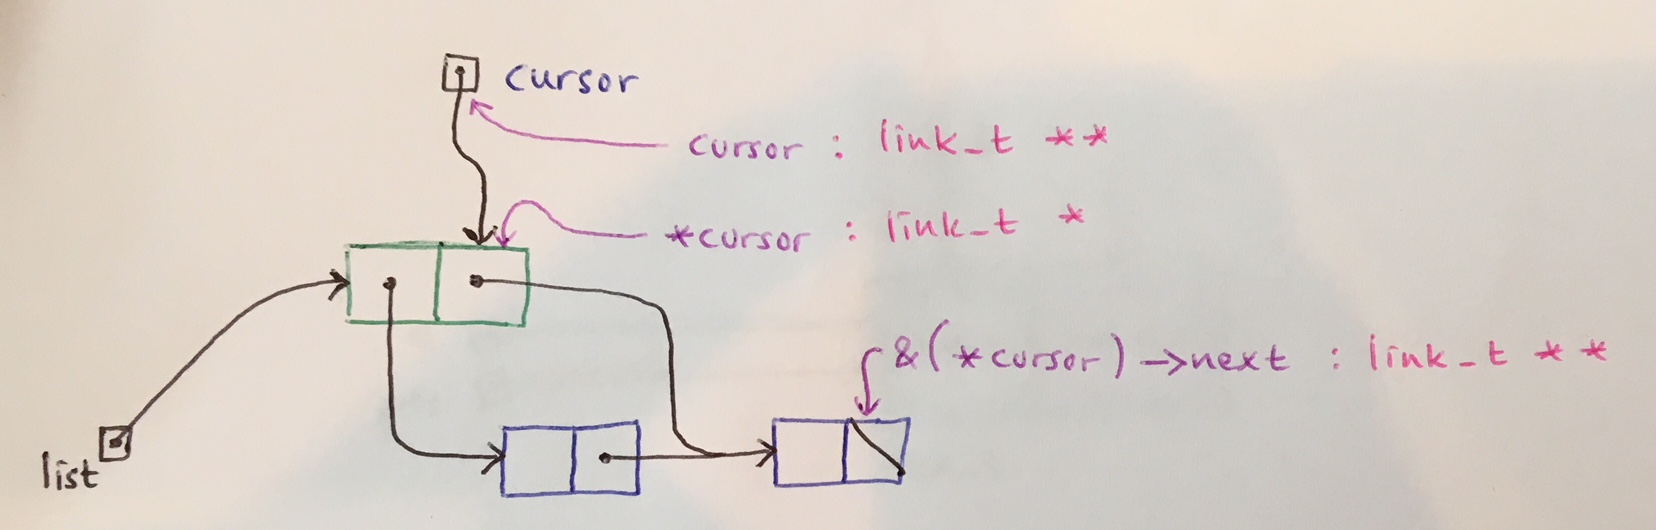 cursor
cursor : link_t **
*cursor : link_t *
&(*cursor)->next : link_t **
list